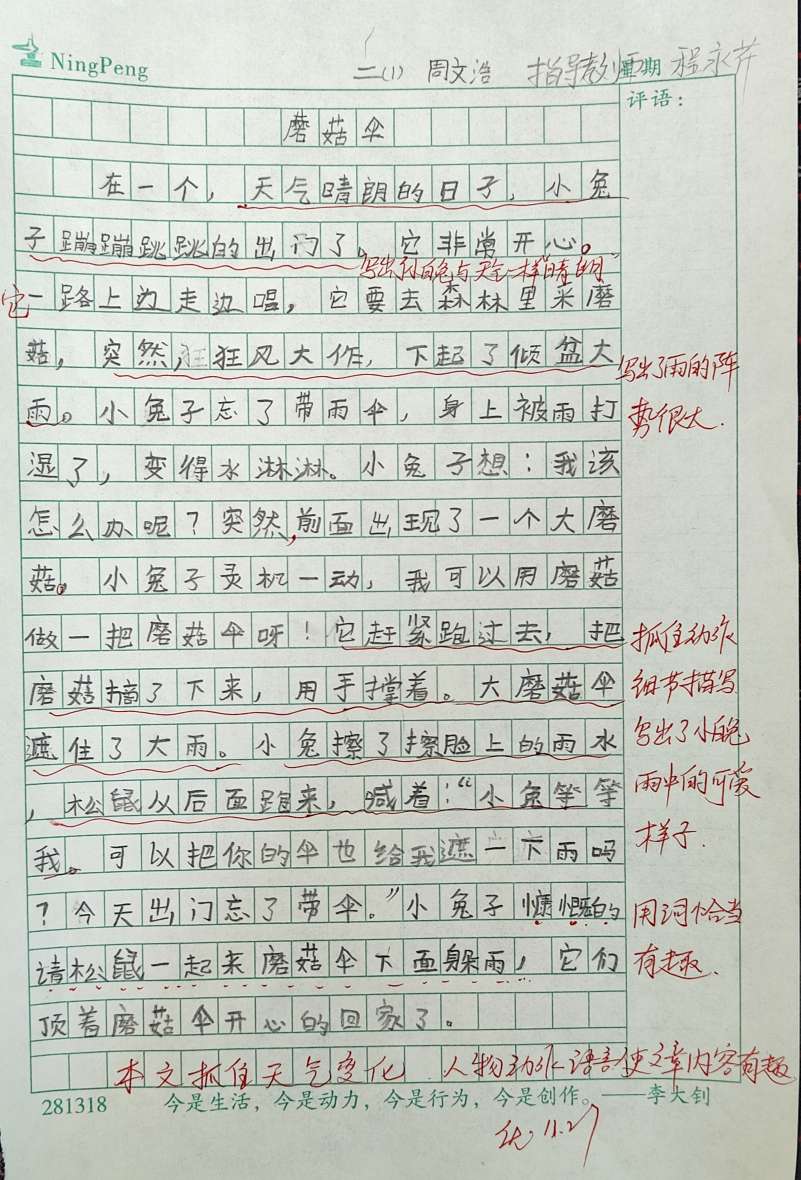 NingPeng
二(1) 周文浩 指导教师 星期 程永芹
评语：
磨菇伞
在一个，天气晴朗的日子，小兔
子蹦蹦跳跳的出门了。它非常开心。
写出小白兔与天气一样晴朗
它一路上边走边唱，它要去森林里采磨
菇，突然，狂狂风大作，下起了倾盆大
写出了雨的阵
雨。小兔子忘了带雨伞，身上被雨打
势很大．
湿了，变得水淋淋。小兔子想：我该
怎么办呢？突然，前面出现了一个大磨
菇。小兔子灵机一动，我可以用磨菇
做一把磨菇伞呀！它赶紧跑过去，把
抓住动作
磨菇摘了下来，用手撑着。大磨菇伞
细节描写
遮住了大雨。小兔擦了擦脸上的雨水
写出了小白兔
，松鼠从后面跑来，喊着：“小兔等等
雨中的可爱
我。可以把你的伞也给我遮一下雨吗
样子．
？今天出门忘了带伞。”小兔子慷慨的
用词恰当
请松鼠一起来磨菇伞下面躲雨，它们
有趣．
顶着磨菇伞开心的回家了。
本文抓住天气变化．人物动作语言使文章内容有趣
281318 今是生活，今是动力，今是行为，今是创作。——李大钊
优 11.27